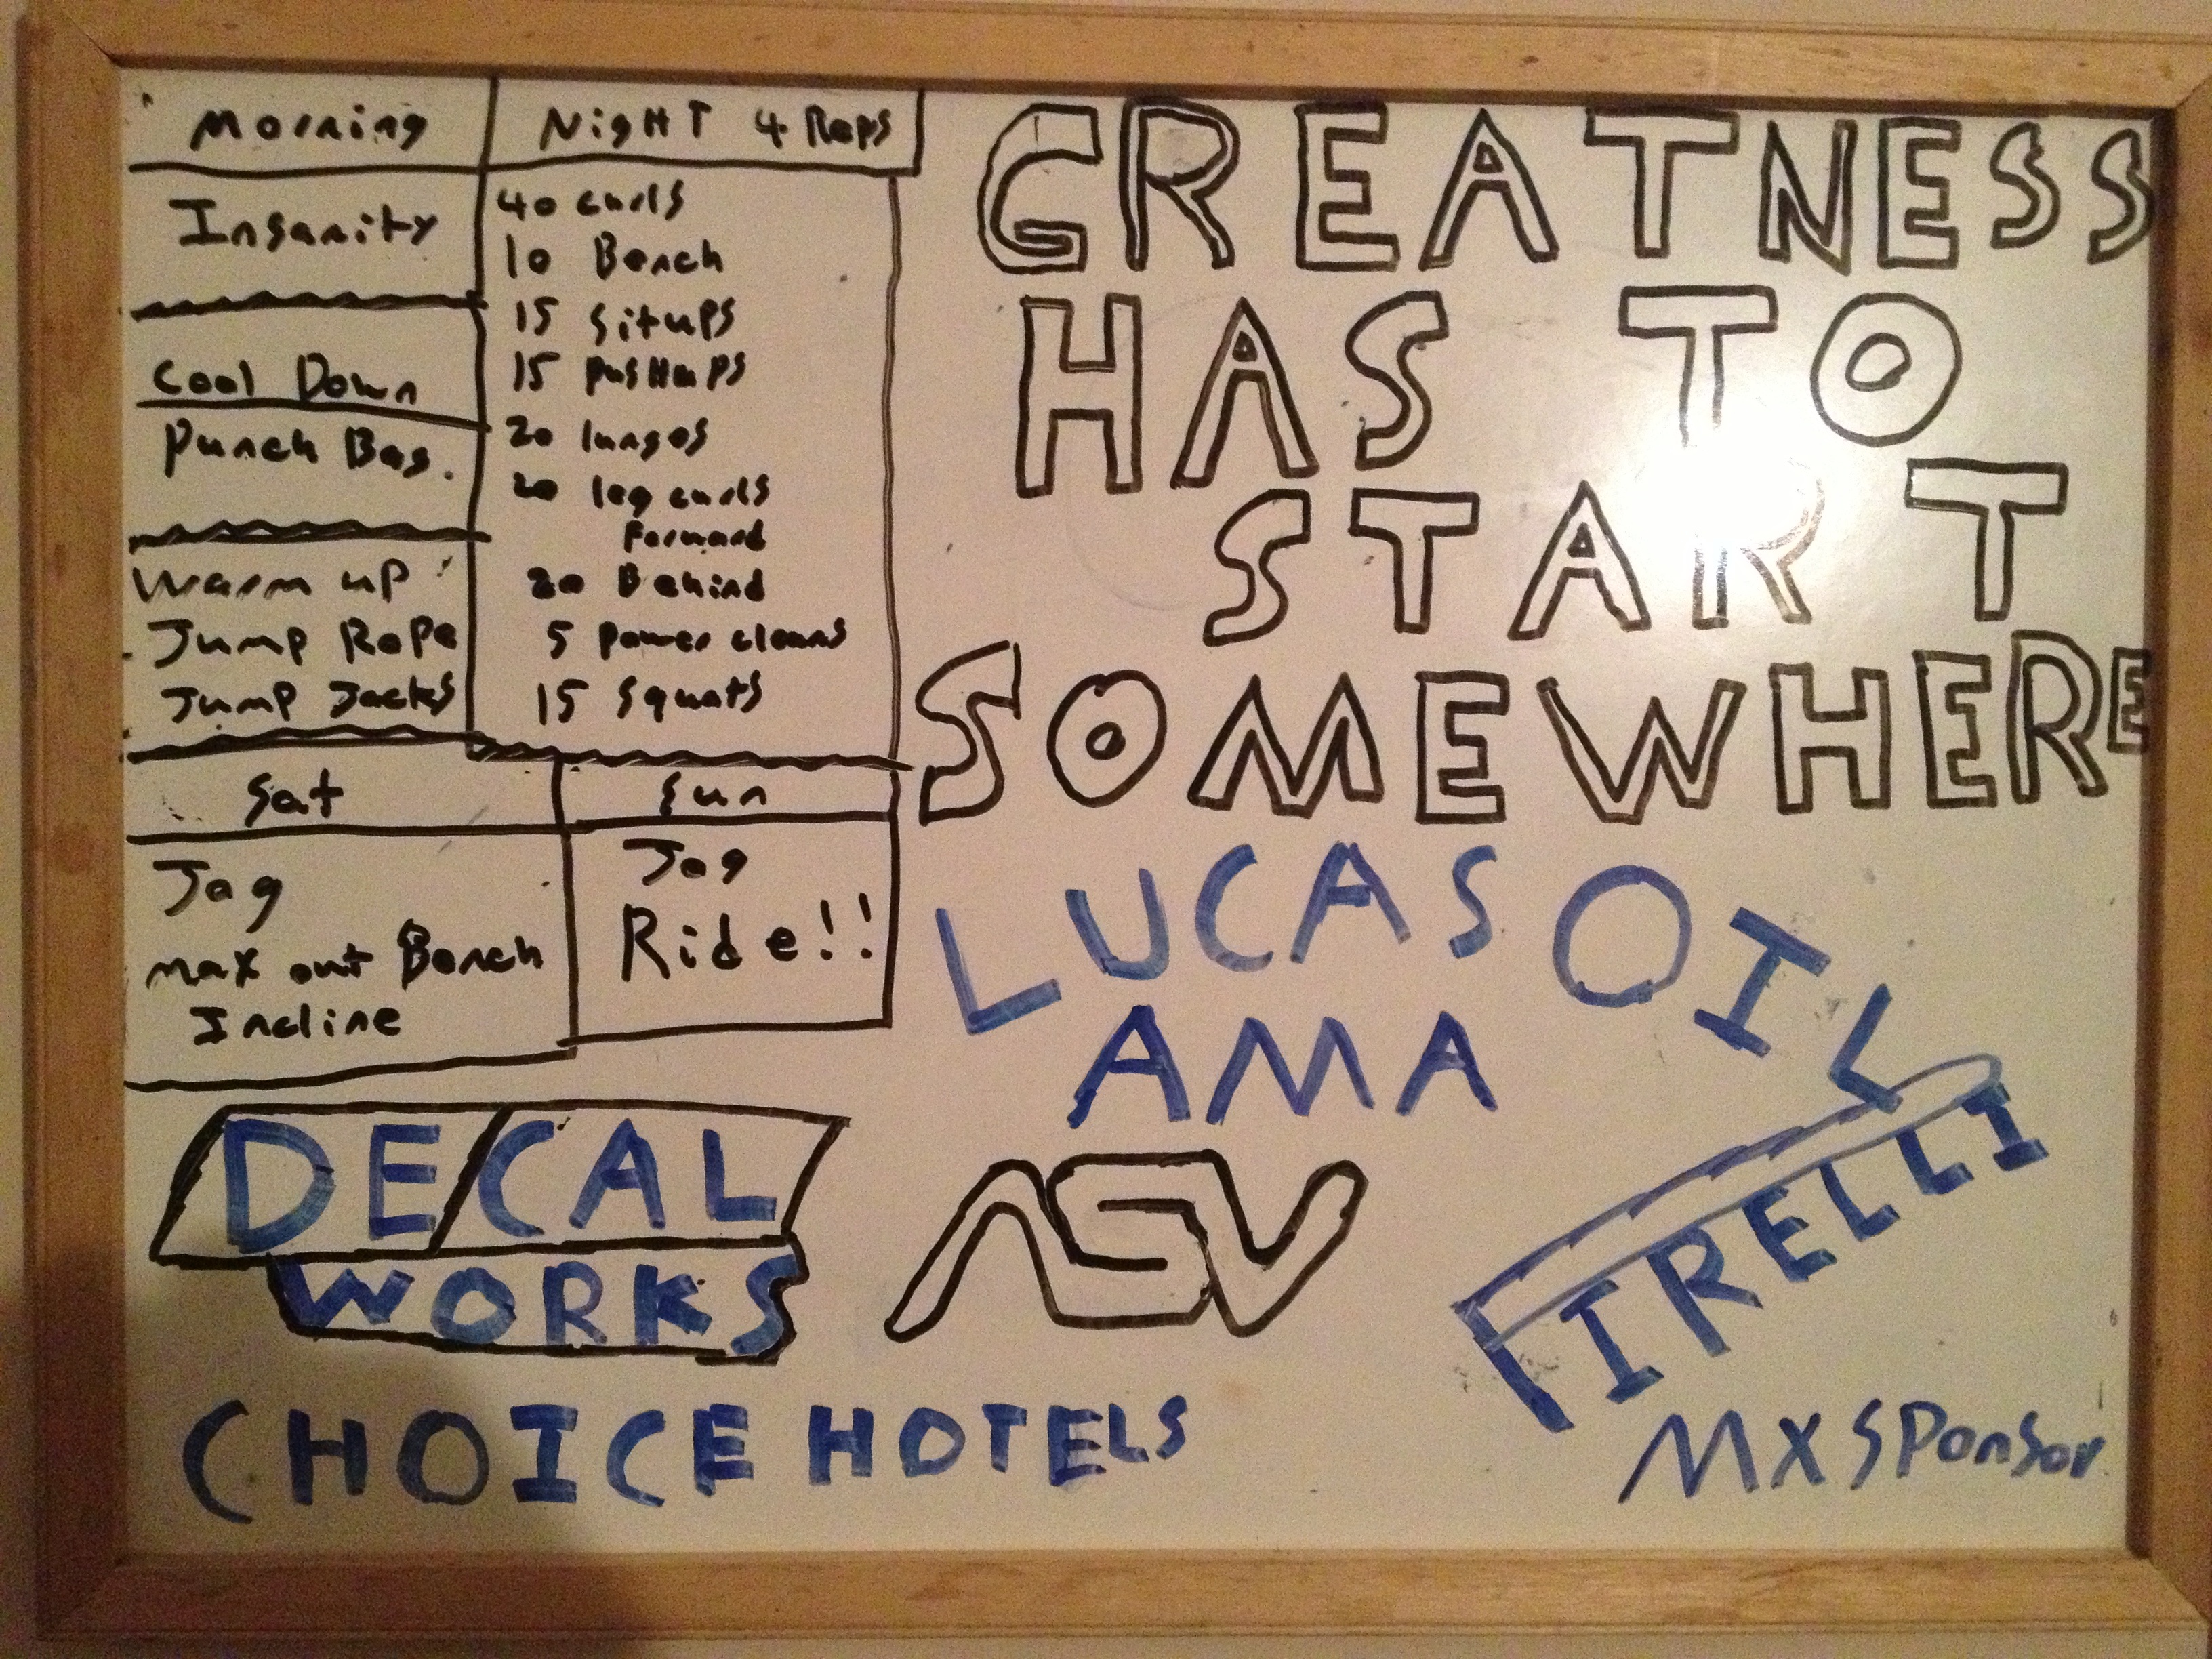 Morning
Insanity
Cool Down
Punch Bag.
Warm up
Jump Rope
Jump Jacks
NigHT 4 Reps
40 curls
10 Bench
15 situps
15 pusHups
20 lunges
20 leg curls
Forward
20 Behind
5 power cleans
15 squats
Sat
Jog
max out Bench
Incline
Sun
Jog
Ride!!
GREATNESS
HAS TO
START
SOMEWHERE
LUCAS OIL
AMA
DECAL
WORKS
ASV
PIRELLI
CHOICE HOTELS
MX SPonSor